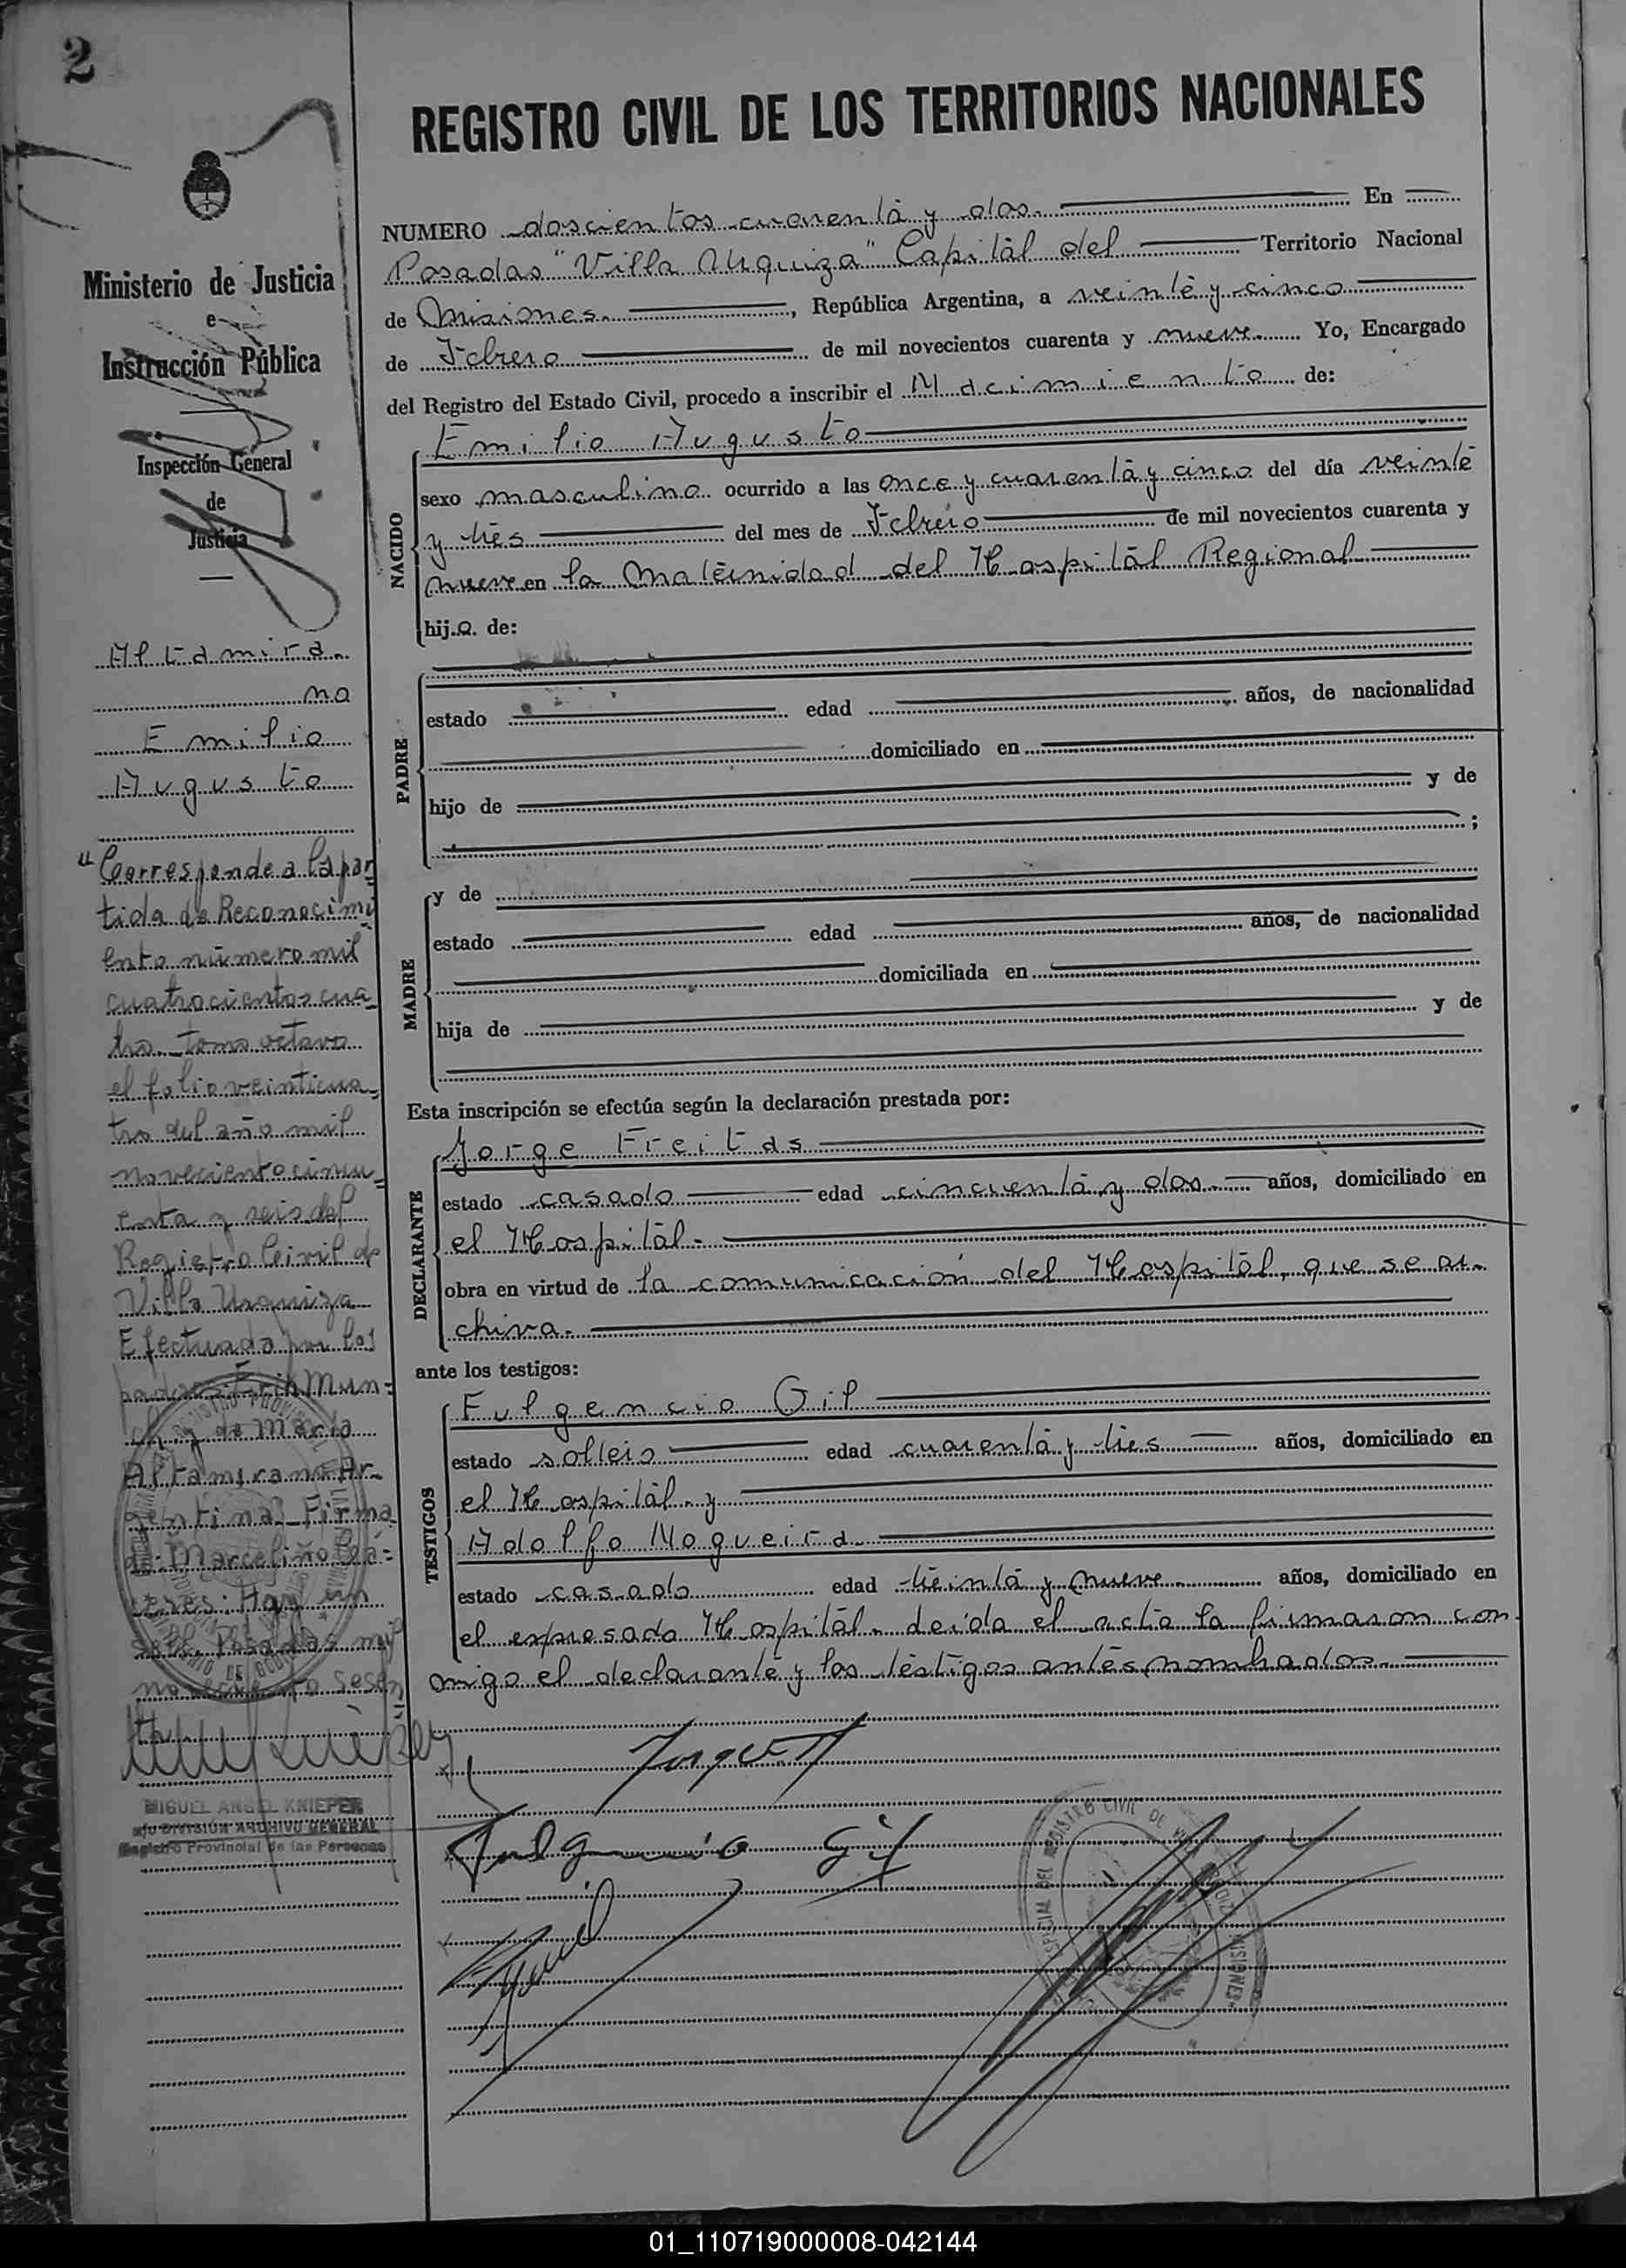 2
REGISTRO CIVIL DE LOS TERRITORIOS NACIONALES
Ministerio de Justicia
e
Instrucción Pública
Inspección General
de
Justicia
Altamira-
no
Emilio
Augusto
"Corresponde a la par
tida de Reconocimi
ento número mil
cuatrocientos cua
tro tomo octavo
el folio veinticua-
tro del año mil
noveciento cincu
enta y seis del
Registro Civil de
Villa Urquiza
Efectuado por los
padres: Mun-
ch y de María
Altamirano Ar-
gentina. Firma
do: Marcelino Cá-
ceres: Hay un
sello Posadas mil
novecientos sesen
ta
MIGUEL ANGEL KNIEPER
DIVISION ARCHIVO GENERAL
Registro Provincial de las Personas
NUMERO doscientos cuarenta y dos. En
Posadas "Villa Urquiza" Capital del Territorio Nacional
de Misiones. , República Argentina, a veinte y cinco
de Febrero de mil novecientos cuarenta y nueve. Yo, Encargado
del Registro del Estado Civil, procedo a inscribir el Nacimiento de:
NACIDO
Emilio Augusto
sexo masculino ocurrido a las once y cuarenta y cinco del día veinte
y tres del mes de Febrero de mil novecientos cuarenta y
nueve en la Maternidad del Hospital Regional
hijo de:
PADRE
estado edad años, de nacionalidad
domiciliado en
hijo de y de
;
MADRE
y de
estado edad años, de nacionalidad
domiciliada en
hija de y de
Esta inscripción se efectúa según la declaración prestada por:
DECLARANTE
Jorge Freitas
estado casado edad cincuenta y dos años, domiciliado en
el Hospital.
obra en virtud de la comunicación del Hospital, que se ar-
chiva.
ante los testigos:
TESTIGOS
Fulgencio Gil
estado soltero edad cuarenta y tres años, domiciliado en
el Hospital y
Adolfo Nogueira
estado casado edad treinta y nueve años, domiciliado en
el expresado Hospital. Leida el acta la firmaron con-
migo el declarante y los testigos antes nombrados.
Fulgencio Gil
REGISTRO CIVIL DE VILLA URQUIZA MISIONES
01_110719000008-042144